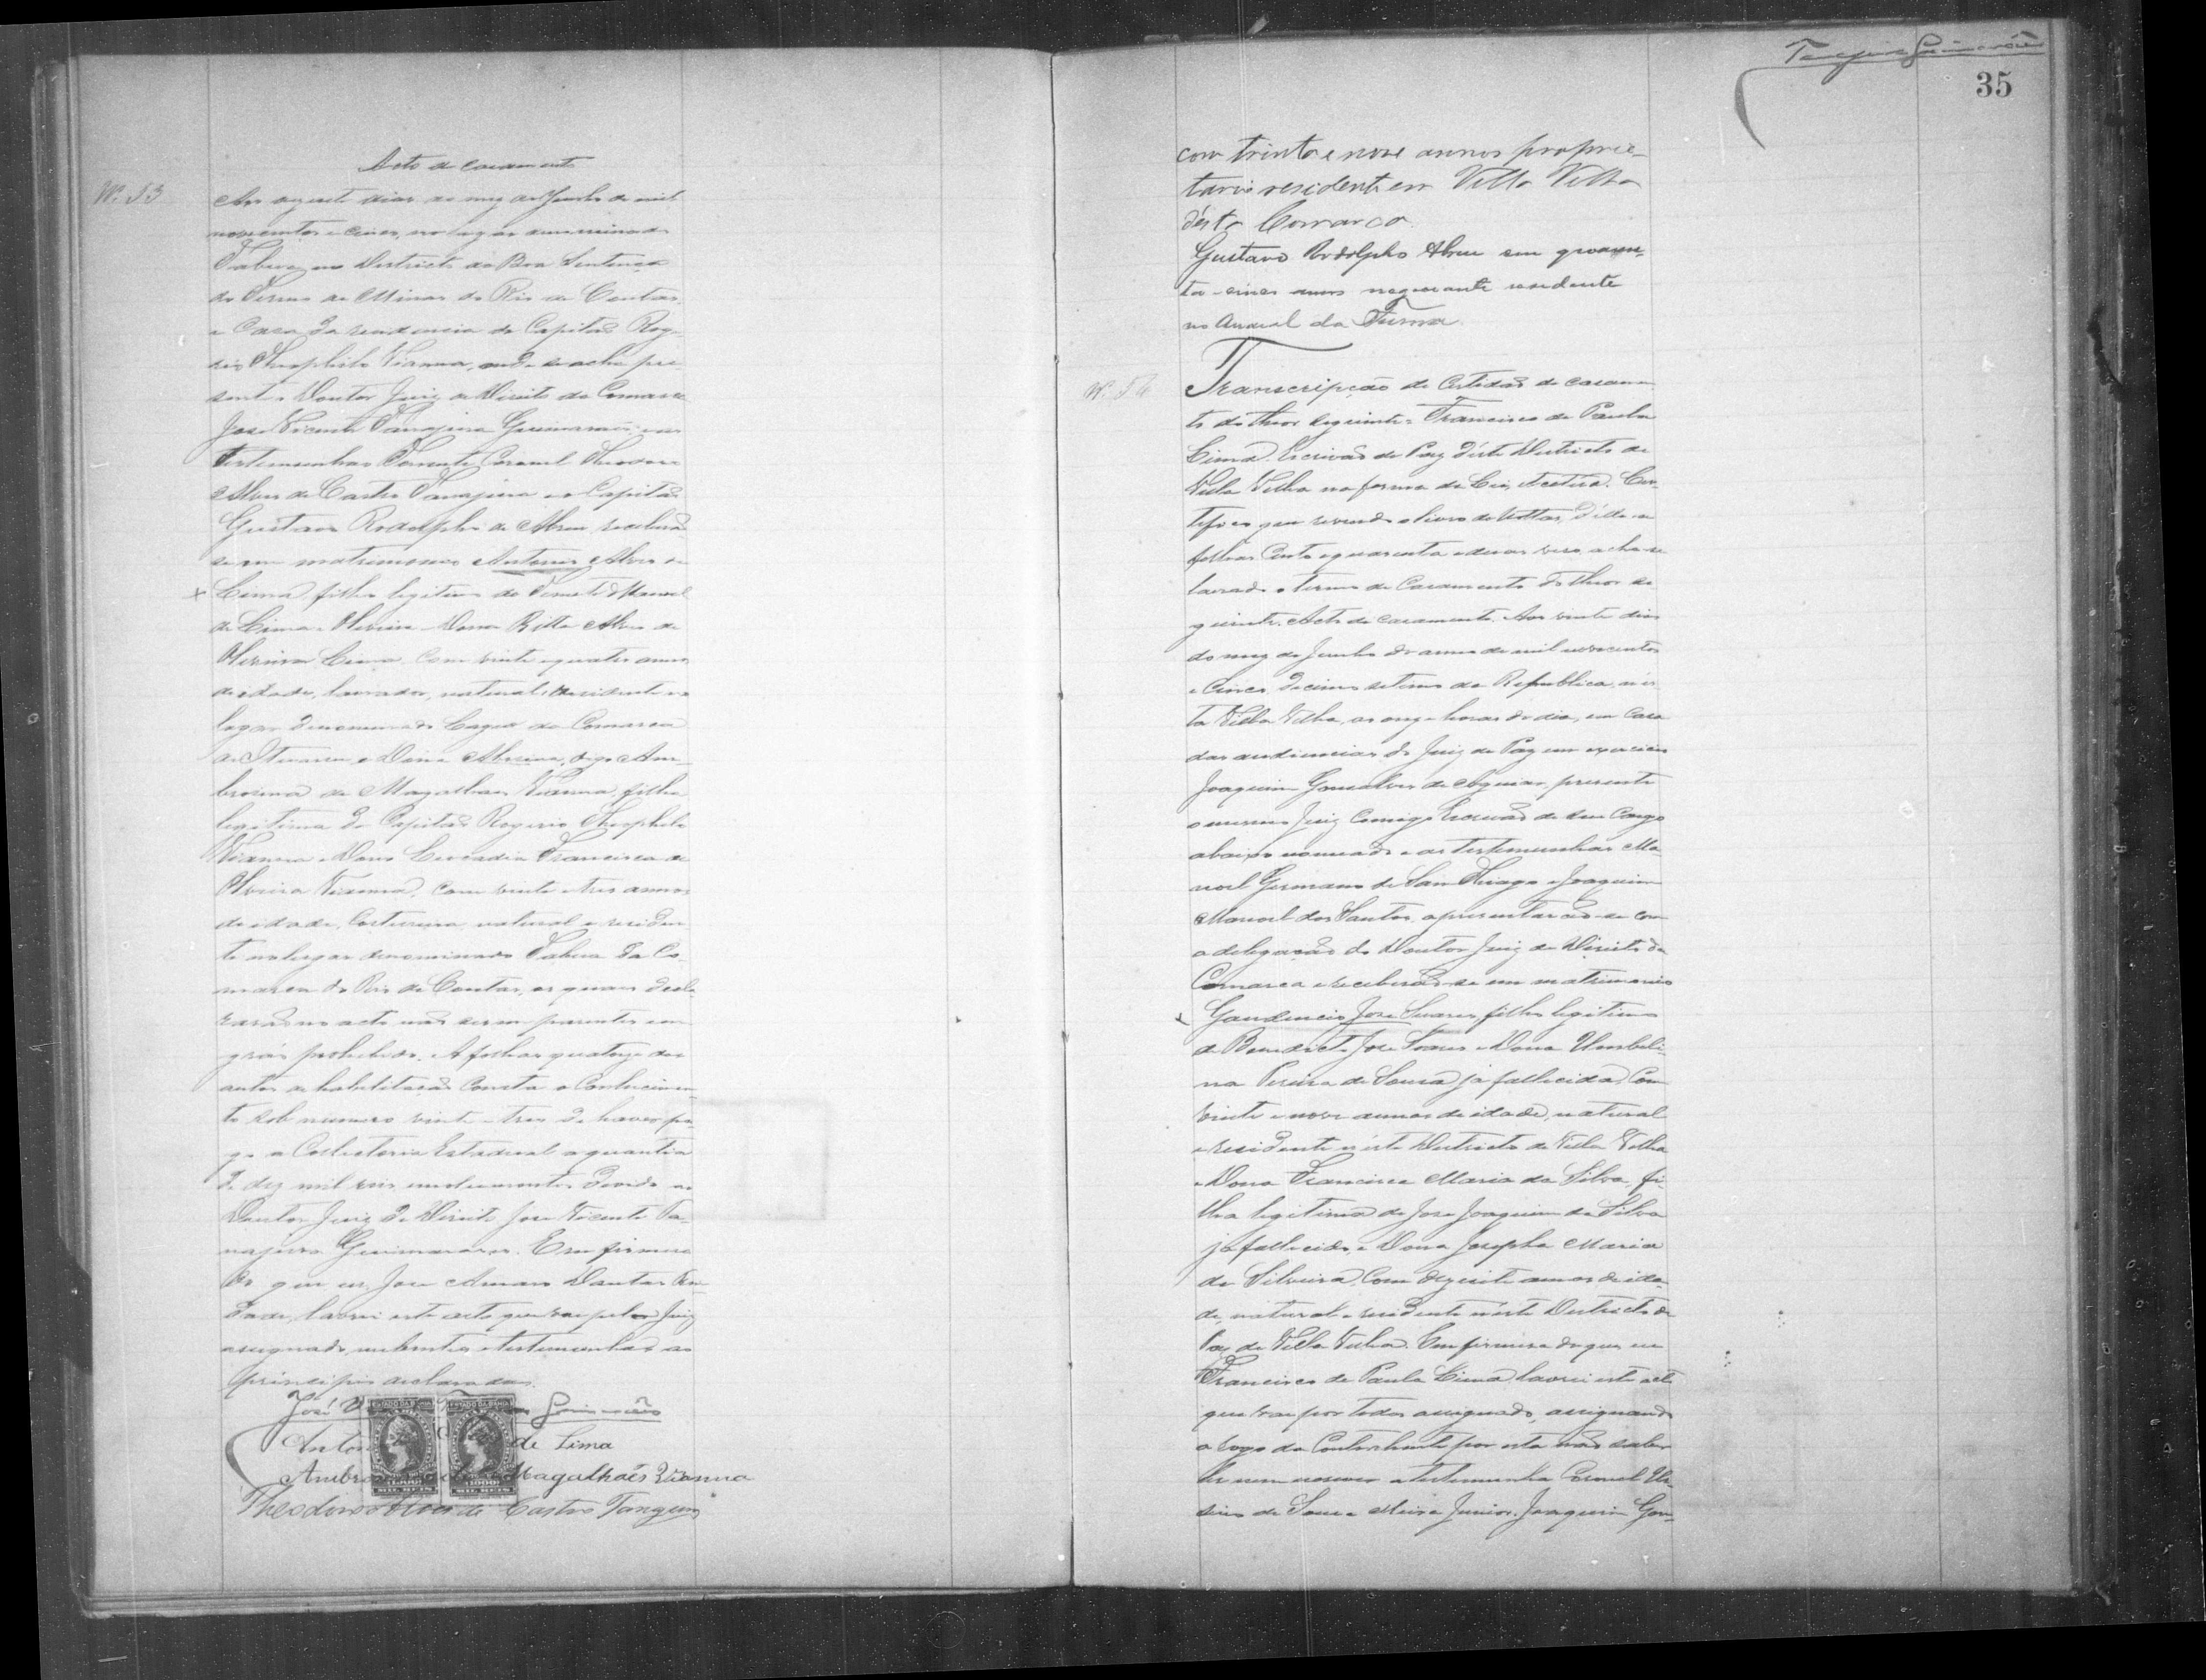 Acto de casamento
Nº 53
Aos dezesete dias do mez de Junho de mil
novecentos e cinco, no lugar denominado
Tabua, no Districto da Boa Sentença
do Termo de Minas do Rio de Contas,
e Casa da residencia do Capitão Roge-
rio Theophilo Vianna, onde se acha pre-
sente o Doutor Juiz de Direito da Comarca
José Vicente Tanajura Guimarães, e as
testemunhas Tenente Coronel Theodoro
Alves de Castro Tanajura e o Capitão
Gustavo Rodolpho de Abreu, receberão
se em matrimonio Antonio Alves de
Lima, filho legitimo do Tenente Manoel
de Lima e Oliveira e Dona Ritta Alves de
Oliveira Lima, com vinte e quatro annos
de idade, lavrador, natural e residente no
lugar denominado Lagoa da Comarca
de Ituassú e Dona digo Am-
brosina de Magalhães Vianna, filha
legitima do Capitão Rogerio Theophilo
Vianna e Dona Leocadia Francisca de
Oliveira Vianna, com vinte e tres annos
de idade, Costureira natural e residen-
te no lugar denominado Tabua da Co-
marca do Rio de Contas, os quaes decla-
rarão no acto não serem parentes em
gráo prohibido. A folhas quatorze dos
autos de habilitação consta o Conhecimen-
to sob numero vinte e tres de haver pa-
go a Collectoria Estadual a quantia
de dez mil reis, emolumentos devido ao
Doutor Juiz de Direito José Vicente Ta-
najura Guimarães. E em firmeza
do que eu, José Amaro Dantas
lavrei este acto que vae pelo Juiz
assignado, nubentes e testemunhas ao
principio declaradas.
José Guimarães
de Lima
de Magalhães Vianna
Theodoro Alves de Castro Tanajura
Tanajura Guimarães
35
com trinta e nove annos proprie-
tario residente em Villa Velha
désta Comarca.
Gustavo Rodolpho Abreu com quaren-
ta e cinco annos negociante residente
no Arraial da Furna.
Nº 54
Transcripção de Certidão de casamen-
to do theor seguinte = Francisco de Paula
Lima Escrivão de Paz déste Districto de
Villa Velha na forma da Lei, etcetera. Cer-
tifico que revendo o livro de Nottas, délle a
folhas Cento e quarenta e duas verso acha-se
lavrado o termo de Casamento do theor se-
guinte. Acto de casamento. Aos vinte dias
do mez de Junho do anno de mil novecentos
e Cinco decimo setimo da Republica, nés-
ta Villa Velha, as onze horas do dia, em Casa
das audiencias do Juiz de Paz em exercicio
Joaquim Gonsalves de Aguiar, presente
o mesmo Juiz Comigo Escrivão de seu Cargo
abaixo nomeado e as testemunhas Ma-
noel Germano de San Thiago e Joaquim
Manoel dos Santos, apresentarão-se com
a delegação do Doutor Juiz de Direito da
Comarca e receberão-se em matrimonio
Gaudencio José Soares, filho legitimo
de Benedicto José Soares e Dona Umbeli-
na Pereira de Sousa já fallecida, Com
vinte e nove annos de idade, natural
e residente néste Districto de Villa Velha
e Dona Francisca Maria da Silva, fi-
lha legitima de José Joaquim da Silva
já fallecido, e Dona Josepha Maria
da Silveira, Com dezesete annos de ida-
de, natural e residente néste Districto de
Paz de Villa Velha. Em firmeza do que eu
Francisco de Paula Lima, lavrei este acto
que vae por todos assignado, assignando
a rogo da Contrahente por esta não saber
ler nem escrever a testemunha Coronel
de Sousa Meira Junior. Joaquim Gon-